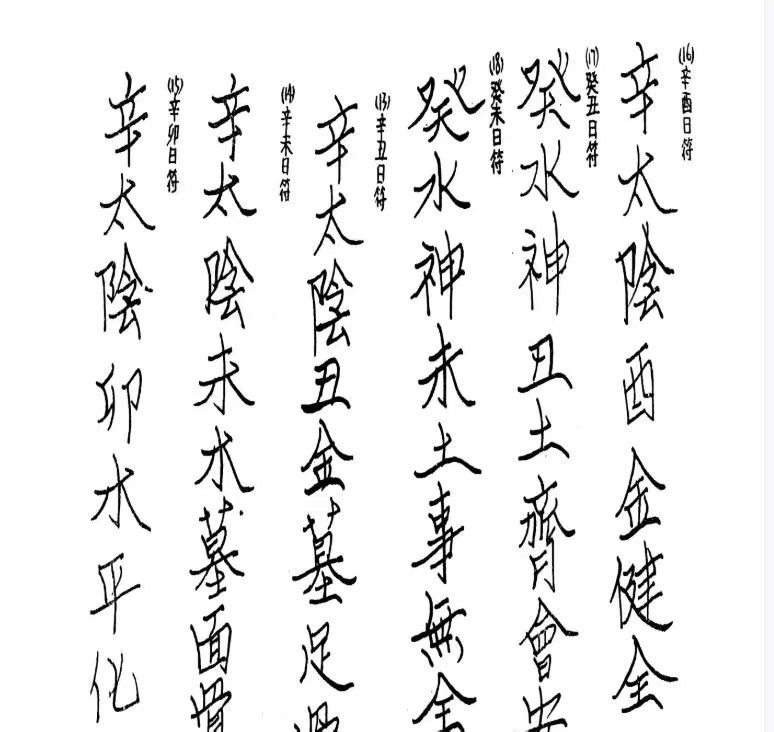 (16)辛酉日符
辛太陰酉金健全
(17)癸丑日符
癸水神丑土齊會安
(18)癸未日符
癸水神未土事無全
(13)辛丑日符
辛太陰丑金墓足骨
(14)辛未日符
辛太陰未木墓面骨
(15)辛卯日符
辛太陰卯木平化